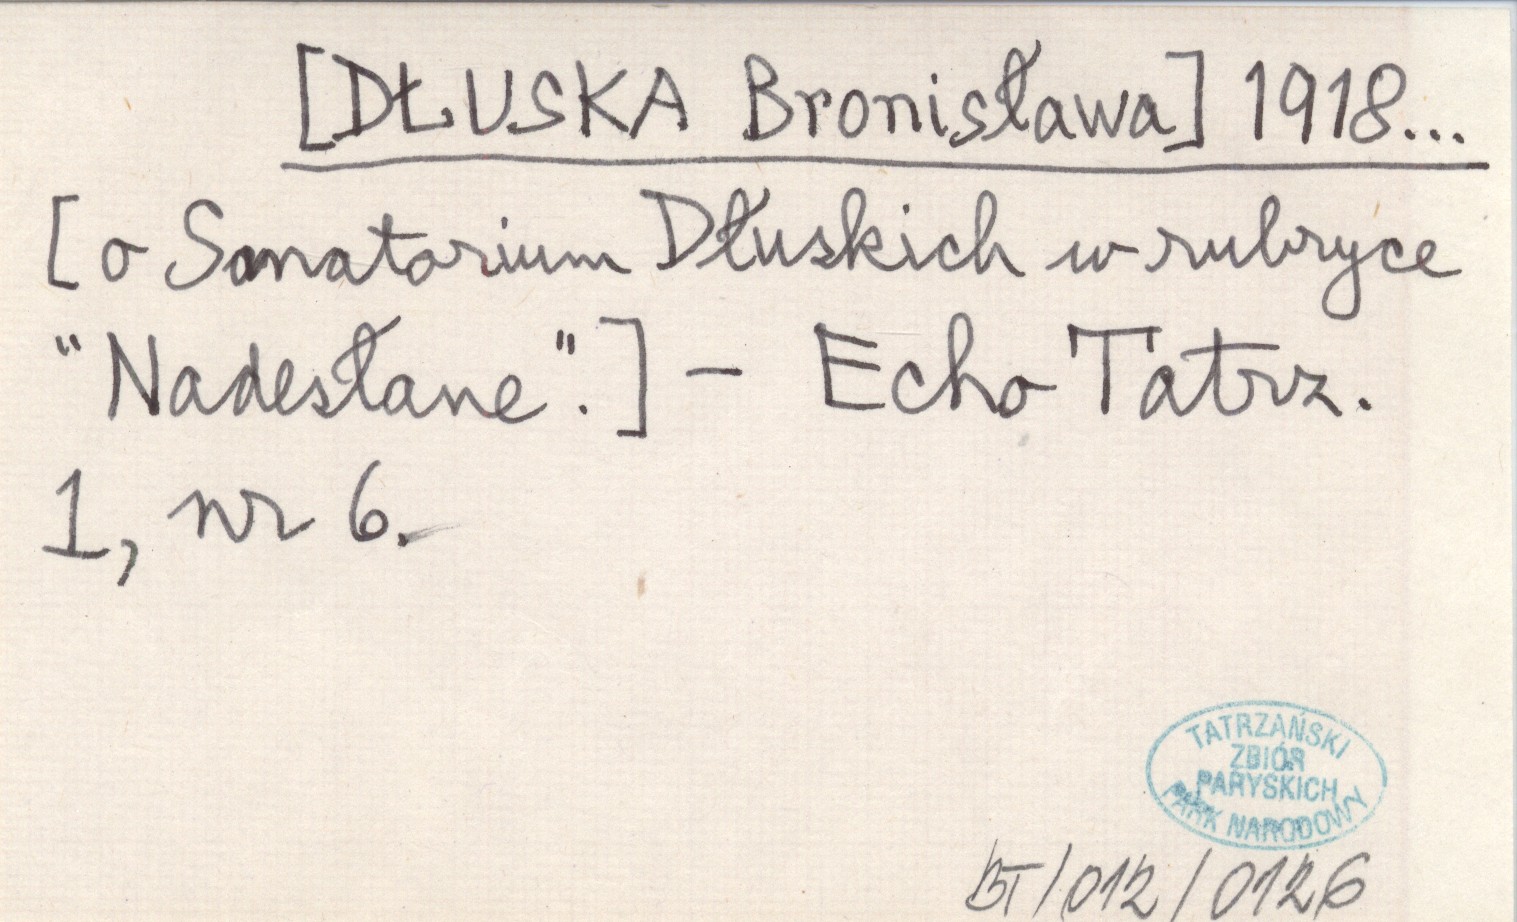 [DŁUSKA Bronisława] 1918...
[o Sanatorium Dłuskich w rubryce
"Nadesłane".] - Echo Tatrz.
1, nr 6.
TATRZAŃSKI
ZBIÓR
PARYSKICH
PARK NARODOWY
BT/012/0126